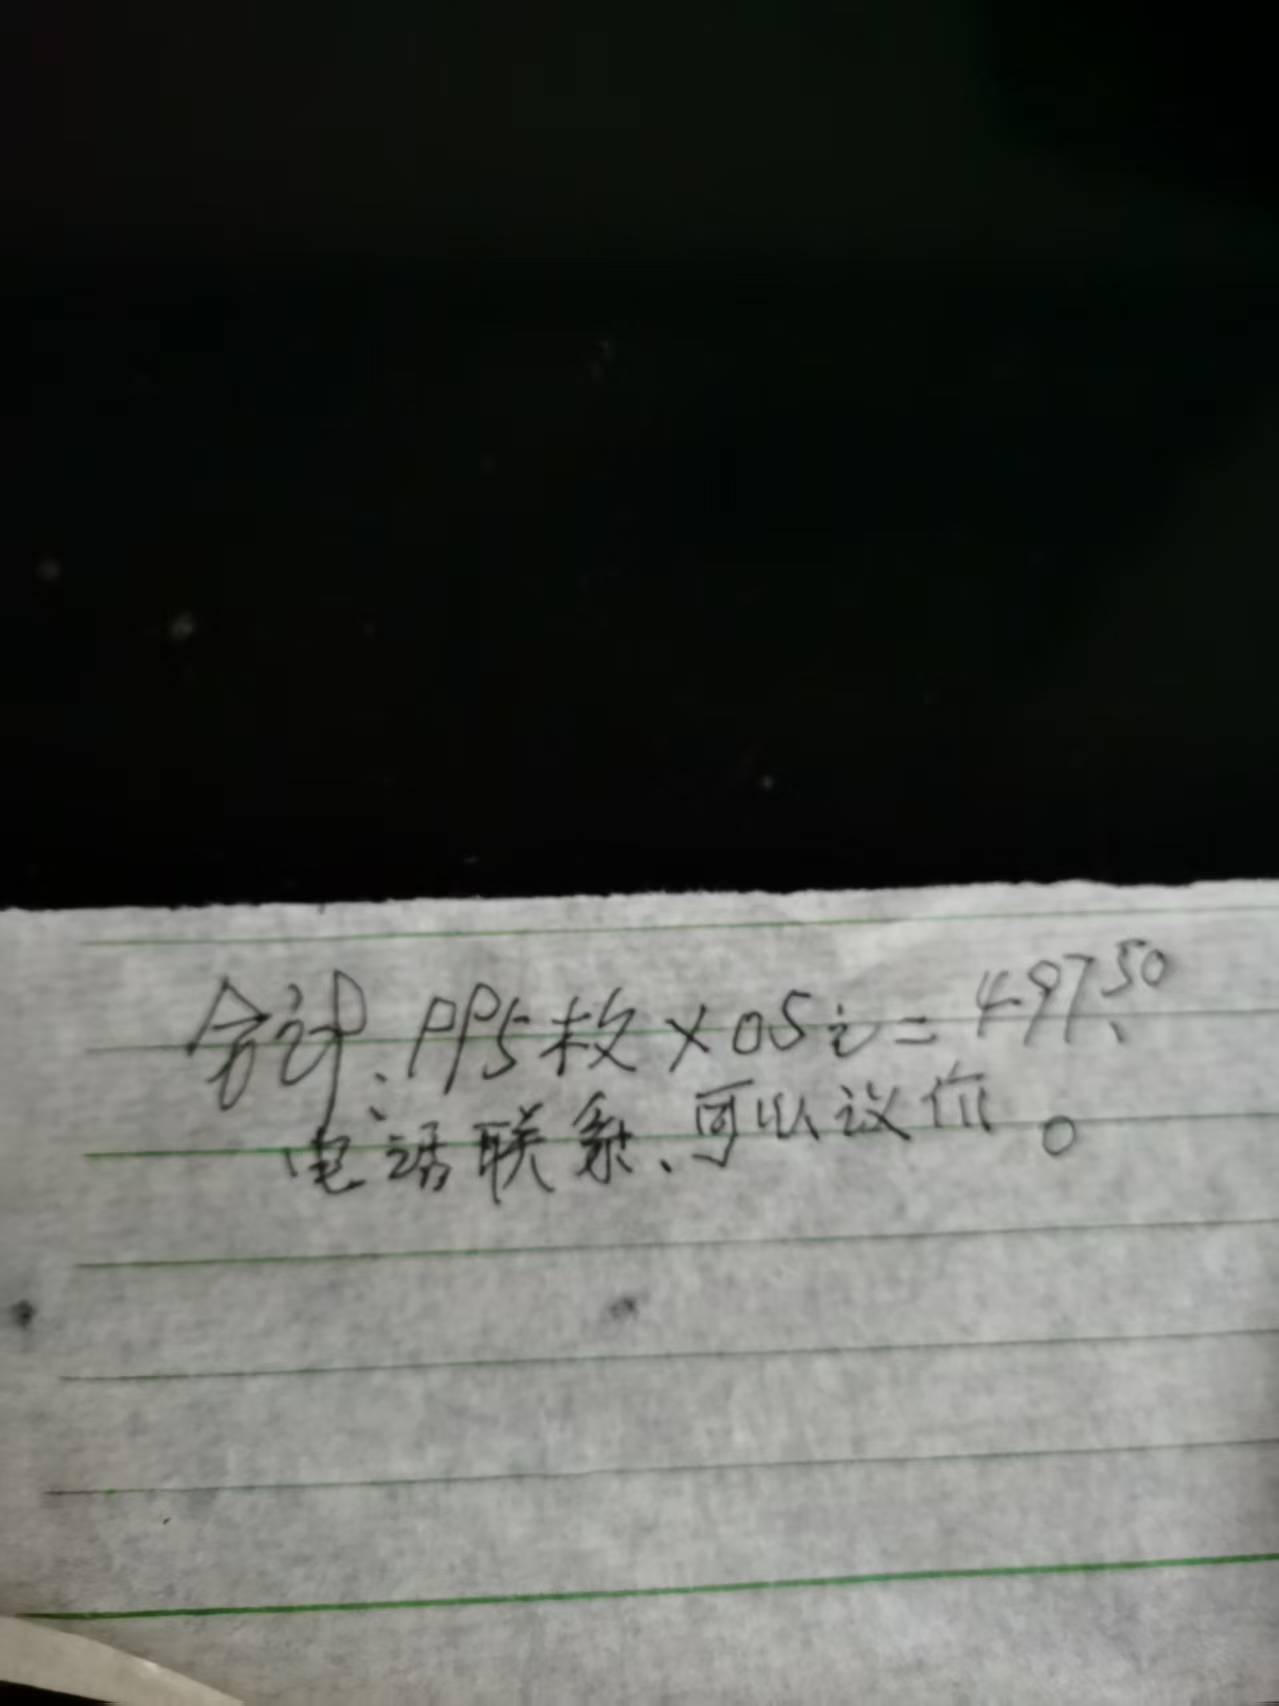 合计、995枚×05元=497.50
电话联系、可以议价。